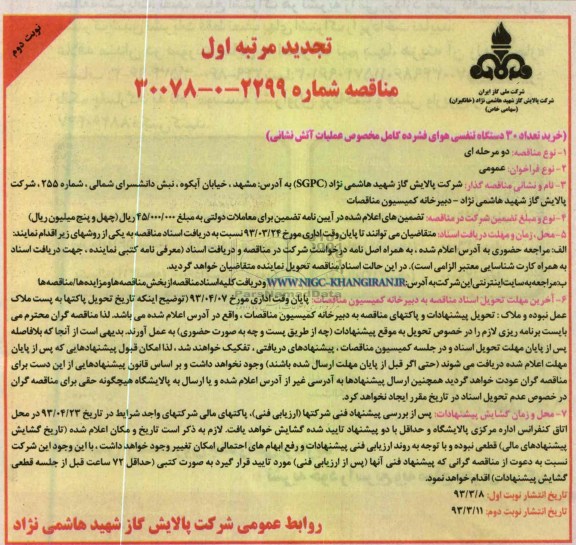 نوبت دوم
شرکت ملی گاز ایران
شرکت پالایش گاز شهید هاشمی نژاد (خانگیران)
(سهامی خاص)
تجدید مرتبه اول
مناقصه شماره ۲۲۹۹-۰-۳۰۰۷۸
(خرید تعداد ۳۰ دستگاه تنفسی هوای فشرده کامل مخصوص عملیات آتش نشانی)
۱- نوع مناقصه: دو مرحله ای
۲- نوع فراخوان: عمومی
۳- نام و نشانی مناقصه گذار: شرکت پالایش گاز شهید هاشمی نژاد (SGPC) به آدرس: مشهد ، خیابان آبکوه ، نبش دانشسرای شمالی ، شماره ۲۵۵ ، شرکت
پالایش گاز شهید هاشمی نژاد - دبیرخانه کمیسیون مناقصات
۴- نوع و مبلغ تضمین شرکت در مناقصه: تضمین های اعلام شده در آیین نامه تضمین برای معاملات دولتی به مبلغ ۴۵/۰۰۰/۰۰۰ ریال (چهل و پنج میلیون ریال)
۵- محل ، زمان و مهلت دریافت اسناد: متقاضیان می توانند تا پایان وقت اداری مورخ ۹۳/۰۳/۲۴ نسبت به دریافت اسناد مناقصه به یکی از روشهای زیر اقدام نمایند:
الف: مراجعه حضوری به آدرس اعلام شده ، به همراه اصل نامه درخواست شرکت در مناقصه و دریافت اسناد (معرفی نامه کتبی نماینده ، جهت دریافت اسناد
به همراه کارت شناسایی معتبر الزامی است). در این حالت اسناد مناقصه تحویل نماینده متقاضیان خواهد گردید.
ب: مراجعه به سایت اینترنتی این شرکت به آدرس: WWW.NIGC-KHANGIRAN.IR و دریافت کلیه اسناد مناقصه از بخش مناقصه ها و مزایده ها/مناقصه ها
۶- آخرین مهلت تحویل اسناد مناقصه به دبیرخانه کمیسیون مناقصات: پایان وقت اداری مورخ ۹۳/۰۴/۰۷ (توضیح اینکه تاریخ تحویل پاکتها به پست ملاک
عمل نبوده و ملاک : تحویل پیشنهادات و پاکتهای مناقصه به دبیرخانه کمیسیون مناقصات ، واقع در آدرس اعلام شده می باشد. لذا مناقصه گران محترم می
بایست برنامه ریزی لازم را در خصوص تحویل به موقع پیشنهادات (چه از طریق پست و چه به صورت حضوری) به عمل آورند. بدیهی است از آنجا که بلافاصله
پس از پایان مهلت تحویل اسناد و در جلسه کمیسیون مناقصات ، پیشنهادهای دریافتی ، تفکیک خواهند شد ، لذا امکان قبول پیشنهادهایی که پس از پایان
مهلت اعلام شده دریافت می شوند (حتی اگر قبل از پایان مهلت ارسال شده باشند) وجود نخواهد داشت و بر اساس قانون پیشنهادهایی از این دست برای
مناقصه گران عودت خواهد گردید همچنین ارسال پیشنهادها به آدرسی غیر از آدرس اعلام شده و یا ارسال به پالایشگاه هیچگونه حقی برای مناقصه گران
در خصوص عدم تحویل اسناد در تاریخ مقرر ایجاد نخواهد کرد.
۷- محل و زمان گشایش پیشنهادات: پس از بررسی پیشنهاد فنی شرکتها (ارزیابی فنی)، پاکتهای مالی شرکتهای واجد شرایط در تاریخ ۹۳/۰۴/۲۳ در محل
اتاق کنفرانس اداره مرکزی پالایشگاه و حداقل با دو پیشنهاد تایید شده گشایش خواهد یافت. لازم به ذکر است تاریخ و مکان اعلام شده (تاریخ گشایش
پیشنهادهای مالی) قطعی نبوده و با توجه به روند ارزیابی فنی پیشنهادات و رفع ابهام های احتمالی امکان تغییر وجود خواهد داشت ، با این وجود این شرکت
نسبت به دعوت از مناقصه گرانی که پیشنهاد فنی آنها (پس از ارزیابی فنی) مورد تایید قرار گیرد به صورت کتبی (حداقل ۷۲ ساعت قبل از جلسه قطعی
گشایش پیشنهادات) اقدام خواهد نمود.
تاریخ انتشار نوبت اول: ۹۳/۳/۸
تاریخ انتشار نوبت دوم: ۹۳/۳/۱۱
روابط عمومی شرکت پالایش گاز شهید هاشمی نژاد